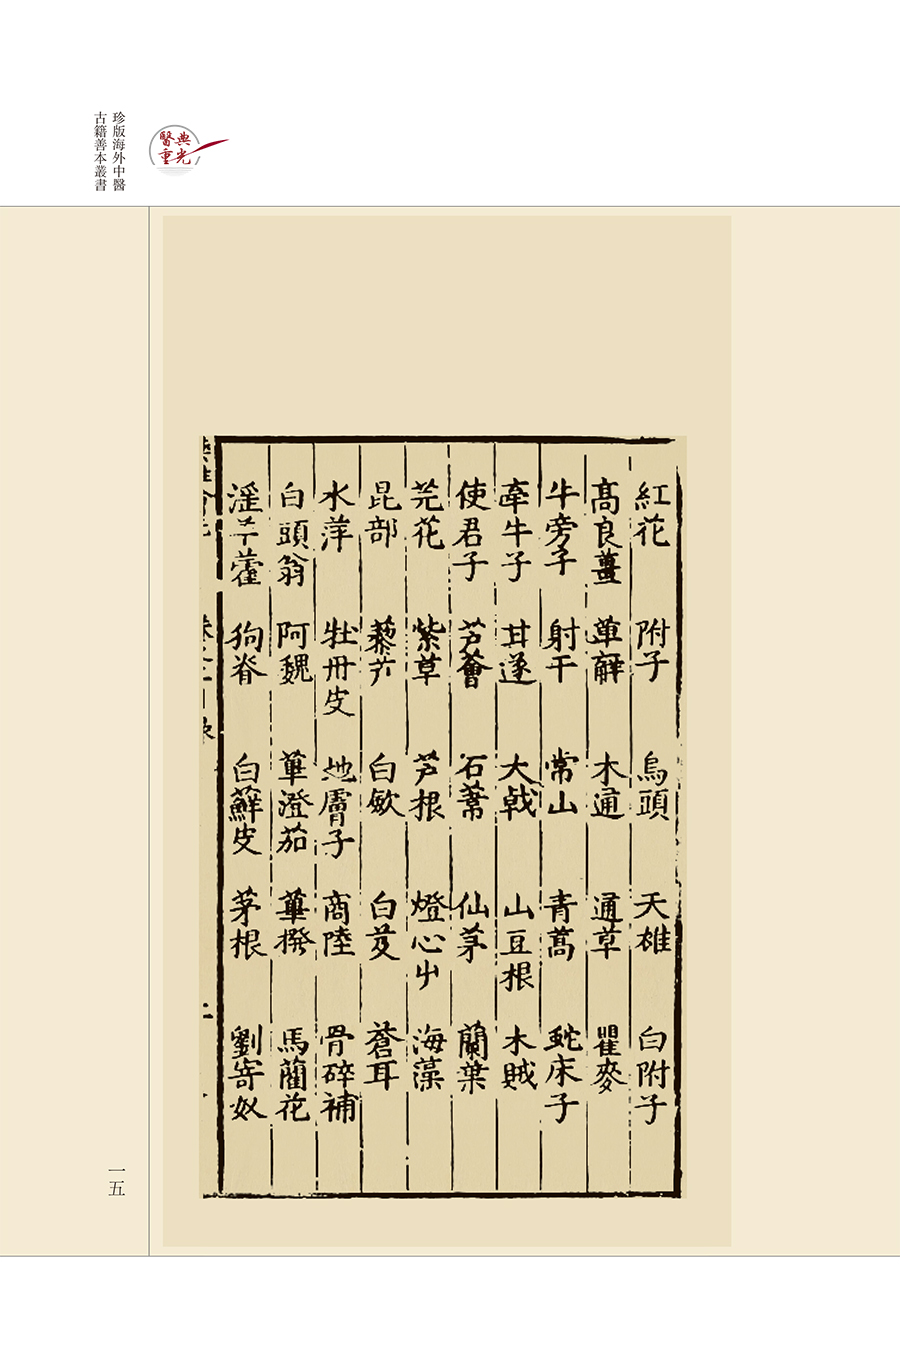 珍版海外中醫
古籍善本叢書
醫典
重光
紅花 附子 烏頭 天雄 白附子
高良薑 萆薢 木通 通草 瞿麥
牛旁子 射干 常山 青蒿 蛇床子
牽牛子 甘遂 大戟 山豆根 木賊
使君子 芦薈 石葦 仙茅 蘭葉
芫花 紫草 芦根 燈心屮 海藻
昆部 藜芦 白歛 白芨 蒼耳
水萍 牡丹皮 地膚子 商陸 骨碎補
白頭翁 阿魏 蓽澄茄 蓽撥 馬藺花
淫羊藿 狗脊 白蘚皮 茅根 劉寄奴
目录
二
一五